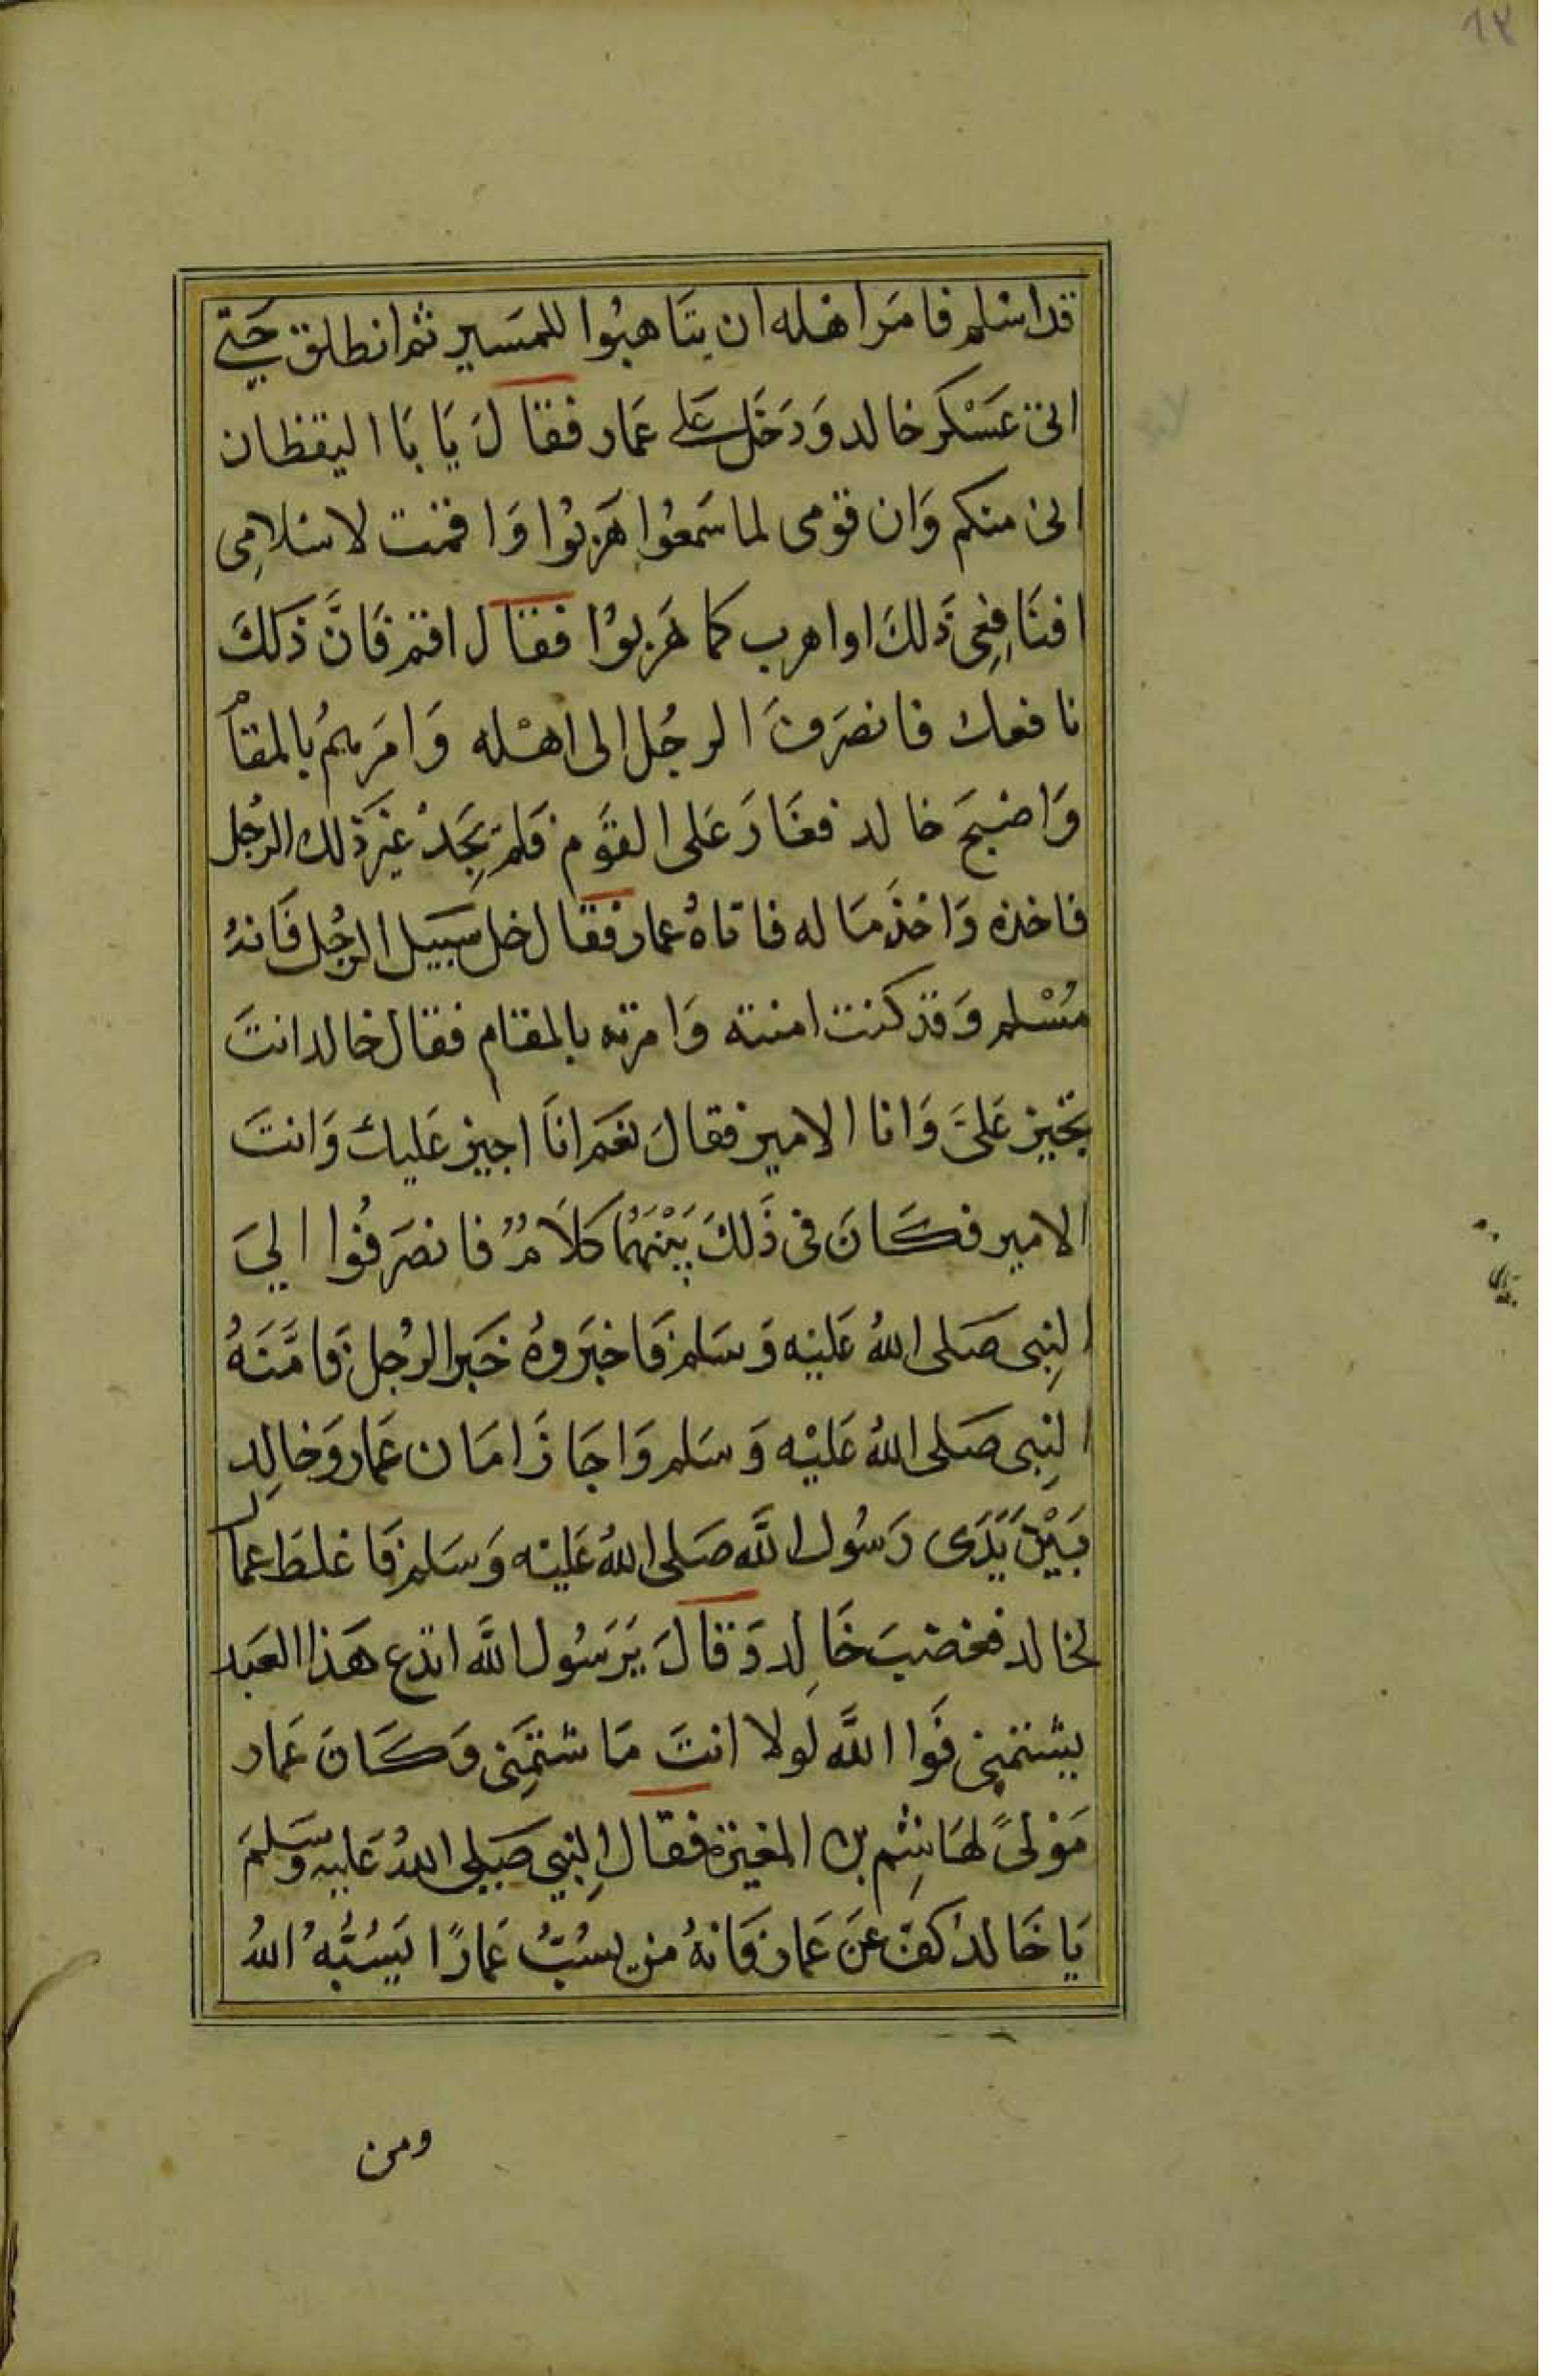 ٦٢
قد اسلم فامَرَ اهله ان يتَاهبُوا للمسَير ثم انطلق حَتي
اتى عَسْكر خالد وَدَخَل عَلى عَمار فقَالَ يَا بَا اليقظان
انى منكم وَان قومى لما سَمعُوا هَربُوا وَاقمت لاسلامِى
افنَافِعِى ذَلكَ او اهرب كما هَربوُا فقال اقم فَانَّ ذَلكَ
نافعك فانصَرَفَ الرجُل الى اهْله وَامَرهمُ بالمقام
وَاصبحَ خالد فغَارَ عَلى القوَم فَلم يَجِدْ غيرَ ذلك الرجُل
فاخذه وَاخذ مَاله فاتاهُ عمار فقال خل سَبيل الرجُل فَانهُ
مُسْلم وَقد كنت امنته وَامرته بالمقام فقال خالد انتَ
تجيز عَليَّ وَانا الامير فقالَ نعَم انَا اجيز عَليك وَانتَ
الامير فكَانَ فى ذَلكَ بَيْنَهُمَا كلاَمٌ فانصَرفُوا اليَ
النِبى صَلى اللهُ عَليْه وَسَلم فَاخبَروهُ خَبر الرجُل فَامَّنَهُ
النِبى صَلى اللهُ عَليْه وَسَلم وَاجَازَ امَان عَمار وَخالِد
بَيْنَ يَدَى رَسُول اللَّه صَلى اللهُ عَليْه وَسَلم فَاغلظ عمار
لخالد فغضبَ خَالِد وَقالَ يَرَسُول اللَّه اتدع هَذا العَبد
يشتمِنى فَوا اللَّه لَولا انتَ مَا شتمَِنى وَكَانَ عَمار
مَوْلىً لهَاشِم بن المغيرَة فقال النِبي صَلى اللهُ عَليه وسَلمَ
يَا خَالد كفّ عَنَ عَمار فَانهُ من يسُبُّ عَمارًا يَسُبُّهُ اللهُ
ومن